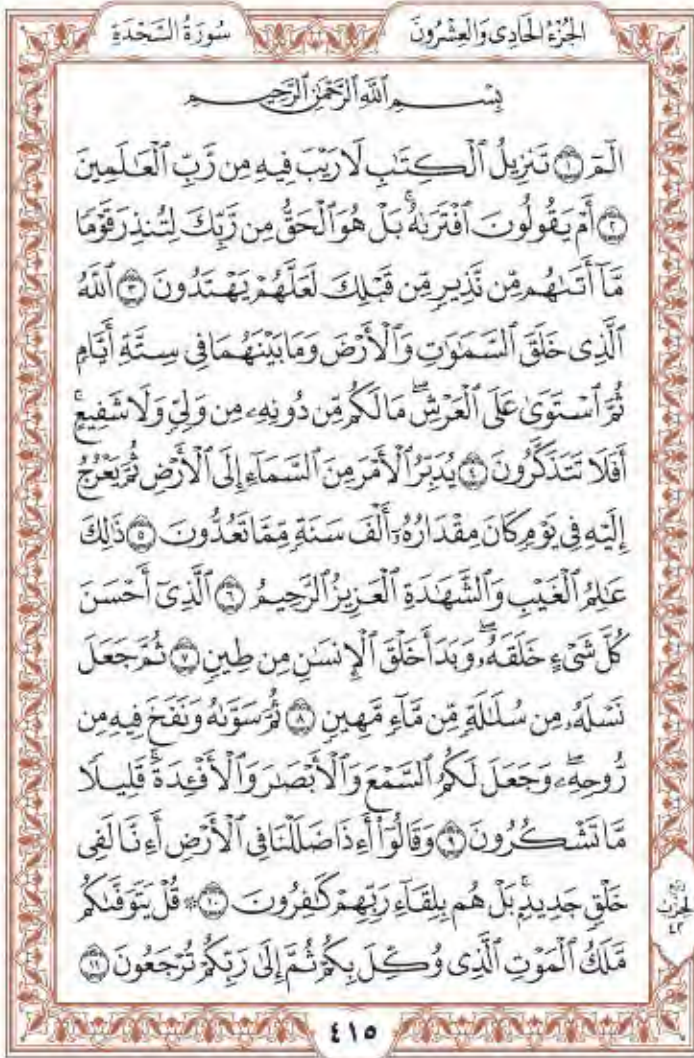 الجُزْءُ الحَادِى وَالعِشْرُونَ
سُورَةُ السَّجْدَةِ
بِسْمِ ٱللَّهِ ٱلرَّحْمَٰنِ ٱلرَّحِيمِ
الٓمٓ ١ تَنزِيلُ ٱلْكِتَٰبِ لَا رَيْبَ فِيهِ مِن رَّبِّ ٱلْعَٰلَمِينَ
٢ أَمْ يَقُولُونَ ٱفْتَرَىٰهُۚ بَلْ هُوَ ٱلْحَقُّ مِن رَّبِّكَ لِتُنذِرَ قَوْمًا
مَّآ أَتَىٰهُم مِّن نَّذِيرٍ مِّن قَبْلِكَ لَعَلَّهُمْ يَهْتَدُونَ ٣ ٱللَّهُ
ٱلَّذِى خَلَقَ ٱلسَّمَٰوَٰتِ وَٱلْأَرْضَ وَمَا بَيْنَهُمَا فِى سِتَّةِ أَيَّامٍ
ثُمَّ ٱسْتَوَىٰ عَلَى ٱلْعَرْشِۖ مَا لَكُم مِّن دُونِهِۦ مِن وَلِىٍّ وَلَا شَفِيعٍۚ
أَفَلَا تَتَذَكَّرُونَ ٤ يُدَبِّرُ ٱلْأَمْرَ مِنَ ٱلسَّمَآءِ إِلَى ٱلْأَرْضِ ثُمَّ يَعْرُجُ
إِلَيْهِ فِى يَوْمٍ كَانَ مِقْدَارُهُۥٓ أَلْفَ سَنَةٍ مِّمَّا تَعُدُّونَ ٥ ذَٰلِكَ
عَٰلِمُ ٱلْغَيْبِ وَٱلشَّهَٰدَةِ ٱلْعَزِيزُ ٱلرَّحِيمُ ٦ ٱلَّذِىٓ أَحْسَنَ
كُلَّ شَىْءٍ خَلَقَهُۥۖ وَبَدَأَ خَلْقَ ٱلْإِنسَٰنِ مِن طِينٍ ٧ ثُمَّ جَعَلَ
نَسْلَهُۥ مِن سُلَٰلَةٍ مِّن مَّآءٍ مَّهِينٍ ٨ ثُمَّ سَوَّىٰهُ وَنَفَخَ فِيهِ مِن
رُّوحِهِۦۖ وَجَعَلَ لَكُمُ ٱلسَّمْعَ وَٱلْأَبْصَٰرَ وَٱلْأَفْـِٔدَةَۚ قَلِيلًا
مَّا تَشْكُرُونَ ٩ وَقَالُوٓا۟ أَءِذَا ضَلَلْنَا فِى ٱلْأَرْضِ أَءِنَّا لَفِى
خَلْقٍ جَدِيدٍۭۚ بَلْ هُم بِلِقَآءِ رَبِّهِمْ كَٰفِرُونَ ١٠ ۞ قُلْ يَتَوَفَّىٰكُم
مَّلَكُ ٱلْمَوْتِ ٱلَّذِى وُكِّلَ بِكُمْ ثُمَّ إِلَىٰ رَبِّكُمْ تُرْجَعُونَ ١١
ربع
الحزب
٤٢
٤١٥